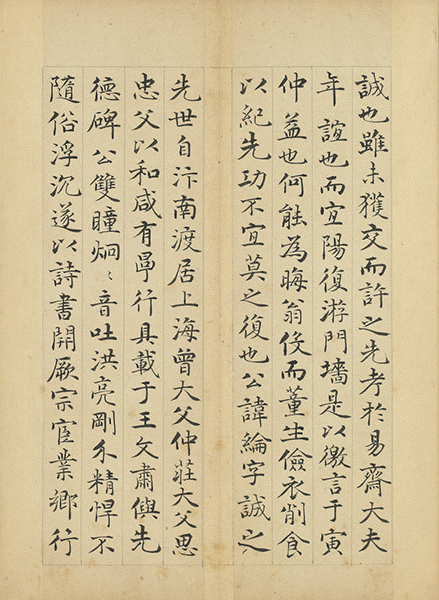 誠也雖未獲交而許之先考於易齋大夫
年誼也而宜陽復游門墻是以徼言于寅
仲益也何能為晦翁役而董生儉衣削食
以紀先功不宜莫之復也公諱綸字誠之
先世自汴南渡居上海曾大父仲莊大父思
忠父以和咸有學行具載于王文肅俁先
德碑公雙瞳炯〻音吐洪亮剛介精悍不
隨俗浮沉遂以詩書開厥宗宦業鄉行